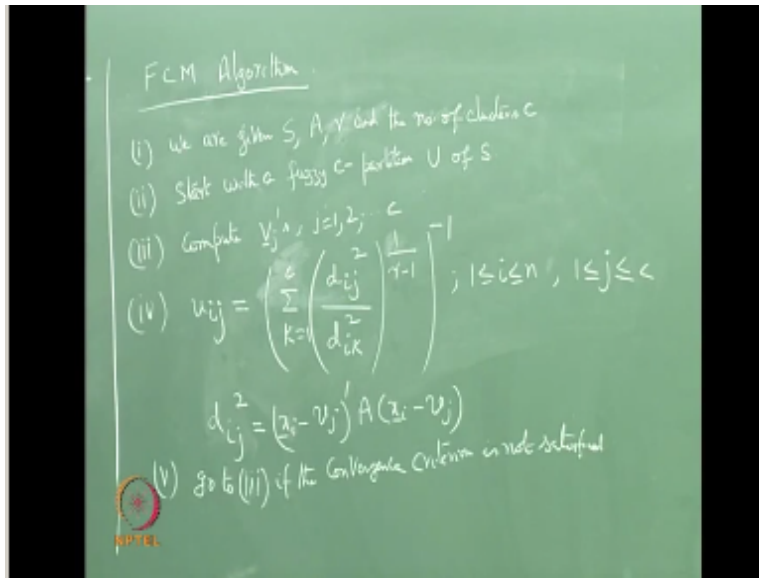 FCM Algorithm
(i) we are given S, A, r and the no. of clusters c
(ii) Start with a fuzzy c-partition U of S
(iii) Compute v_j's, j=1,2,...c
(iv) u_ij = ( Σ_{k=1}^{c} ( d_ij^2 / d_ik^2 )^{1/(r-1)} )^{-1} ; 1≤i≤n, 1≤j≤c
d_ij^2 = (x_i - v_j)' A (x_i - v_j)
(v) go to (iii) if the Convergence Criterion is not satisfied
NPTEL